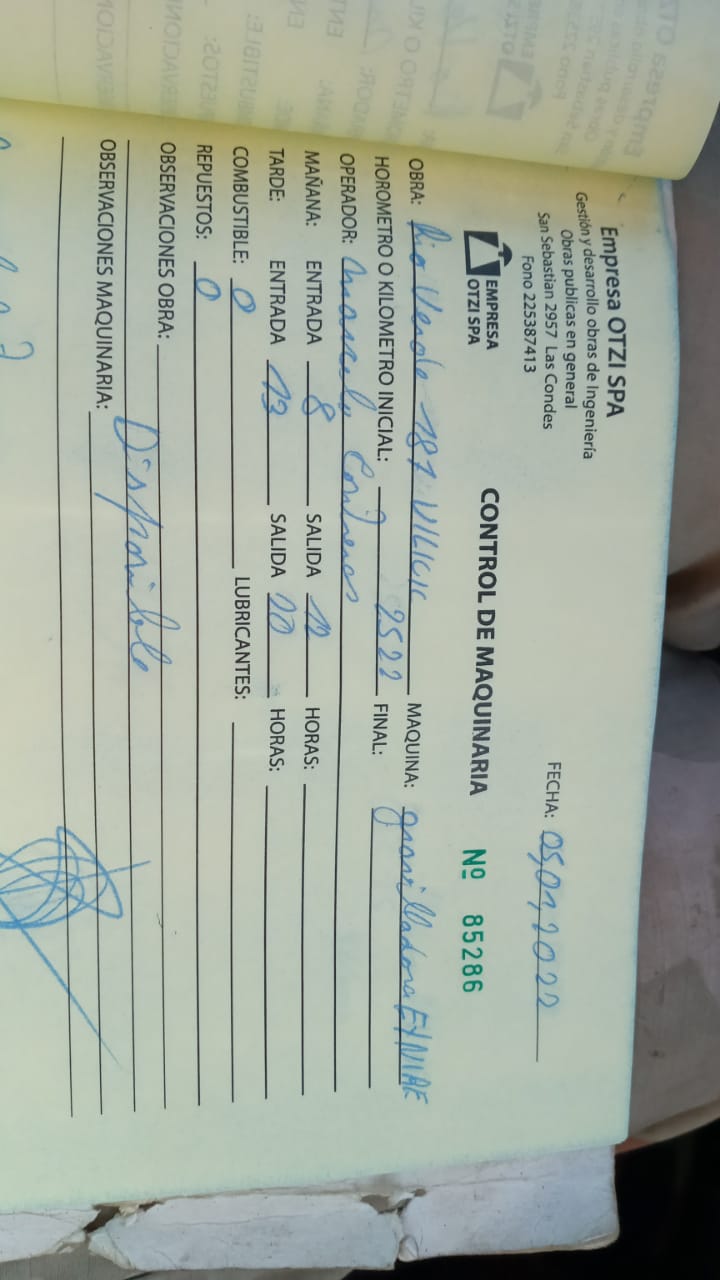 Empresa OTZI SPA
Gestión y desarrollo obras de Ingeniería
Obras publicas en general
San Sebastian 2957 Las Condes
Fono 225387413
FECHA: 05,01,2022
EMPRESA
OTZI SPA
CONTROL DE MAQUINARIA Nº 85286
OBRA: Rio Verde 187 VILICIC MAQUINA: gravilladora
HOROMETRO O KILOMETRO INICIAL: 2522 FINAL:
OPERADOR: Marcelo Contreras
MAÑANA: ENTRADA 8 SALIDA 12 HORAS:
TARDE: ENTRADA 13 SALIDA 20 HORAS:
COMBUSTIBLE: 0 LUBRICANTES:
REPUESTOS: 0
OBSERVACIONES OBRA:
Disponible
OBSERVACIONES MAQUINARIA: